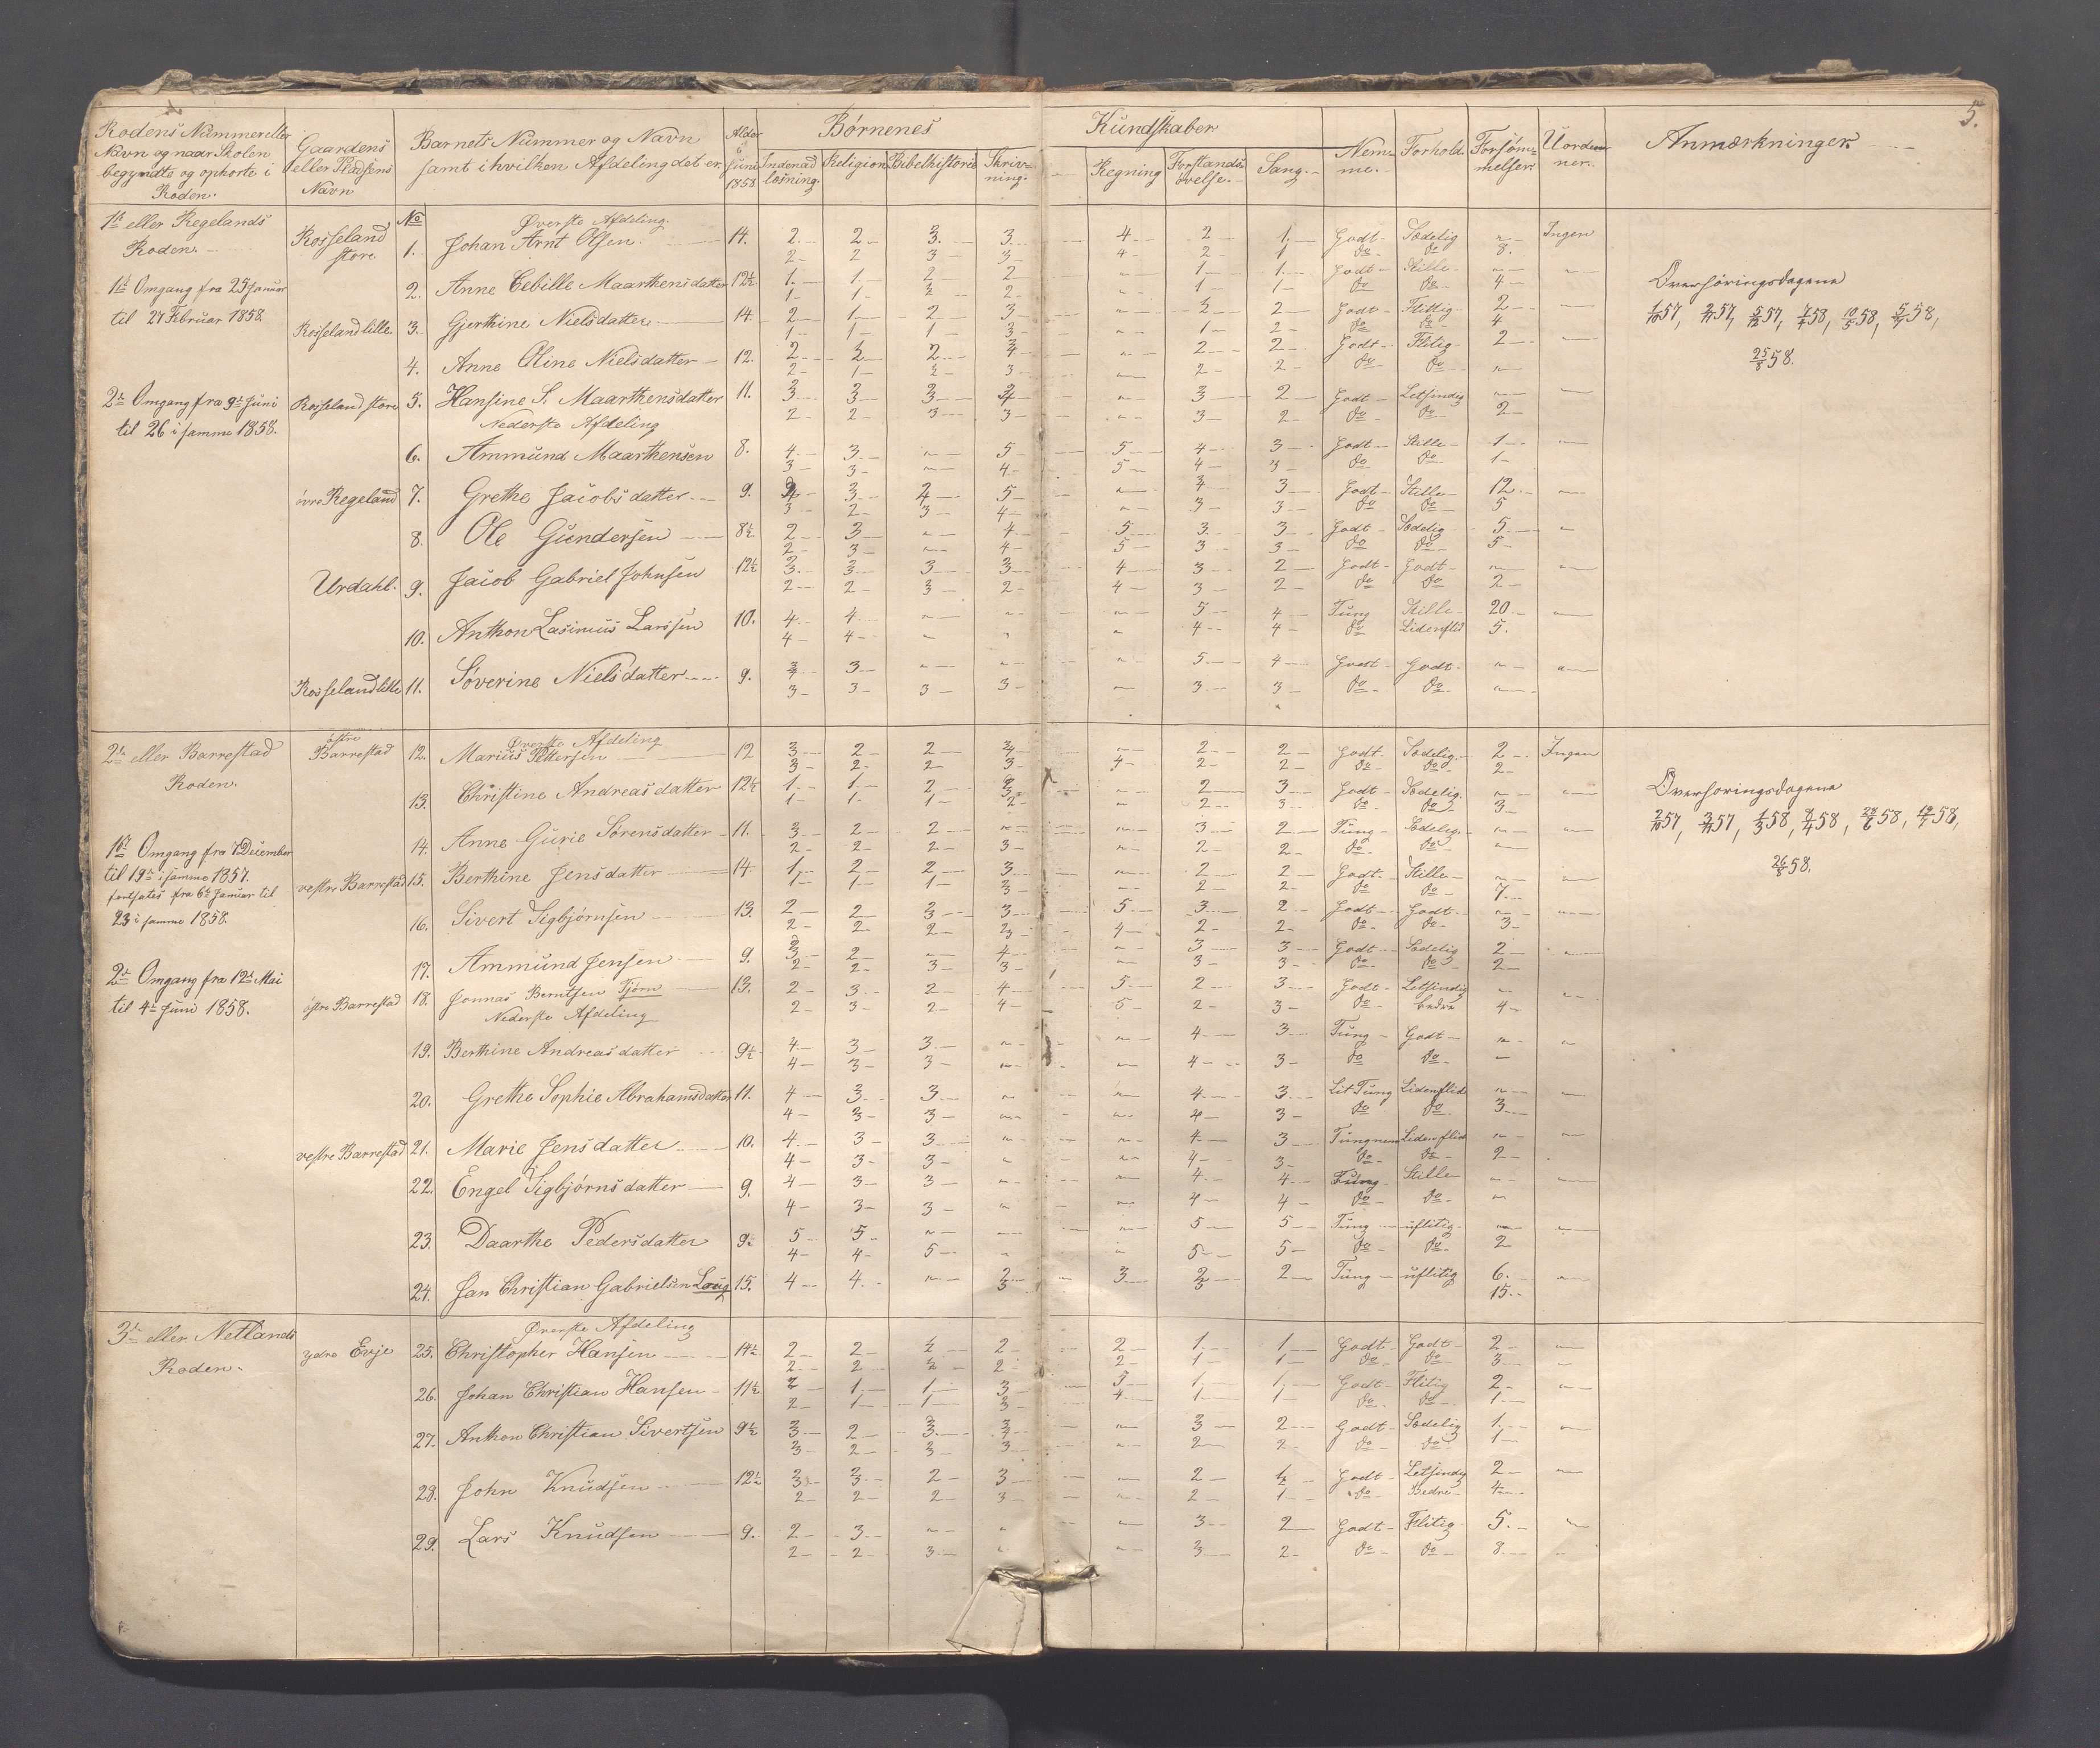 5.
Rodens Nummer eller Navn og naar Skolen begyndte og ophørte i Roden.
Gaardens eller Pladsens Navn
Barnets Nummer og Navn samt i hvilken Afdeling det er.
Alder 6 Juni 1858
Børnenes Kundskaber
Indenad læsning.
Religion
Bibelhistorie
Skrivning.
Regning
Forstands øvelse.
Sang.
Nemme.
Forhold
Forsømmelser
Uordner.
Anmærkninger
1ste eller Regelands Roden.
1ste Omgang fra 25 Januar
til 27 Februar 1858.
2den Omgang fra 9de Juni
til 26 i samme 1858.
No
Øverste Afdeling.
Rosseland store. 1. Johan Arnt Olsen. 14. 2 2 3 3 4 2 1 Godt Sædelig " Ingen
2 2 3 3 4 2 1 do do 8.
2. Anne Cebille Maarthensdatter 12½ 1 1 2 2 " 1 1 Godt Stille " "
1 1 2 " 1 1 do do 4
Rosseland lille 3. Gjerthine Nielsdatter 14. 2 1 2 3 " 2 Godt Flittig 2
1 1 1 3 " 1 2 do do 4
4. Anne Oline Nielsdatter 12. 2 2 " 2 2 Godt Flitig 2
2 1 3 2 2 do do "
Rosseland store 5. Hansine S. Maarthensdatter 11. 3 3 3 " 3 2 Godt Letsindig "
2 2 3 3 " 3 2 do do 2
Nederste Afdeling
6. Ammund Maarthensen 8. 4 3 " 5 5 4 3 Godt Stille 1
3 3 " 4 5 4 3 do do 1
øvre Regeland 7. Grethe Jacobsdatter 9. 5 " 3 Godt Stille 12
3 2 3 4 " 3 3 do do 5
8. Ole Gundersen 8½ 2 3 " 4 5 3 3 Godt Sædelig 5 "
2 3 " 4 5 3 3 do do 5
Urdahl. 9. Jacob Gabriel Johnsen 12½ 3 3 3 3 4 3 2 Godt Godt " "
2 2 3 2 4 3 2 do do 2
10. Anthon Lasimus Larssen 10. 4 4 " " " 5 4 Tung Stille 20 "
4 4 " " " 4 4 do Liden flid 5.
Rosseland lille 11. Søverine Nielsdatter 9. 3 " " " 5 4 Godt Godt " "
3 3 3 3 " 3 3 do do "
Overhøringsdagene
1/10 57, 2/11 57, 5/12 57, 7/4 58, 10/5 58, 5/7 58,
25/8 58.
2den eller Barrestad
Roden.
1ste Omgang fra 7 December
til 19de i samme 1857.
fortsates fra 6te Januar til
23 i samme 1858.
2den Omgang fra 12te Mai
til 4de Juni 1858.
Øverste Afdeling
østre Barrestad 12. Marius Pettersen 12 3 2 2 " 2 2 Godt Sædelig 2 Ingen
3 2 2 3 4 2 2 do do 2
13. Christine Andreasdatter 12½ 1 1 2 " 2 3 Godt Sædelig " "
1 1 1 2 " 2 3 do do 3
14. Anne Gurie Sørensdatter 11. 3 2 2 " " 3 2 Tung Sædelig " "
2 2 2 3 " 2 2 do do "
vestre Barrestad 15. Berthine Jensdatter 14. 1 2 2 3 " 2 2 Godt Stille " "
1 1 1 3 " 2 2 do do 7
16. Sivert Sigbjørnsen 13. 2 2 3 5 3 2 Godt Godt " "
2 2 2 4 2 2 do do 3
17. Ammund Jensen 9. 2 " 4 " 3 3 Godt Sædelig 2 "
2 2 3 3 " 3 3 do do 2
østre Barrestad 18. Jonnas Berntsen Tjørn 13. 2 3 2 4 5 2 3 Godt Letsindig " "
2 3 2 4 5 2 3 do bedre 4
Nederste Afdeling
19. Berthine Andreasdatter 9½ 4 3 3 " " 4 3 Tung Godt " "
4 3 3 " " 4 3 do do "
20. Grethe Sophie Abrahamsdatter 11. 4 3 3 " " 4 3 Lit Tung Liden flid " "
4 3 3 " " 4 3 do do 3
vestre Barrestad 21. Marie Jensdatter 10. 4 3 3 " " 4 3 Tungnem Liden flid " "
4 3 3 " " 4 3 do do 2
22. Engel Sigbjørnsdatter 9. 4 3 3 " " 4 4 Tung Stille " "
4 3 3 " " 4 4 do do "
23. Daarthe Pedersdatter 9½ 5 5 " " " 5 5 Tung uflitig " "
4 4 5 " " 5 5 do do 2
24. Jan Christian Gabrielsen Laug 15. 4 4 " 2 3 2 2 Tung uflitig 6. "
3 3 15.
Overhøringsdagene
2/10 57, 3/11 57, 1/3 58, 8/4 58, 28/6 58, 19/7 58,
26/8 58.
3die eller Netlands
Roden.
Øverste Afdeling
ydre Evje 25. Christopher Hansen 14½ 2 2 2 2 1 1 Godt Godt 2 "
2 2 2 2 1 1 do do 3
26. Johan Christian Hansen 11½ 2 1 1 3 3 1 1 Godt Flitig 2 "
2 1 1 3 4 1 1 do do 1
27. Anthon Christian Sivertsen 9½ 3 2 3 " 3 2 Godt Sædelig 1 "
3 2 3 3 " 2 2 do do 1
28. John Knudsen 12½ 3 3 2 3 " 2 Godt Letsindig 2 "
2 2 2 3 " 2 1 do Bedre 4
29. Lars Knudsen 9. 2 3 " " " 3 2 Godt Flitig 5. "
2 2 3 " " 3 2 do do 8